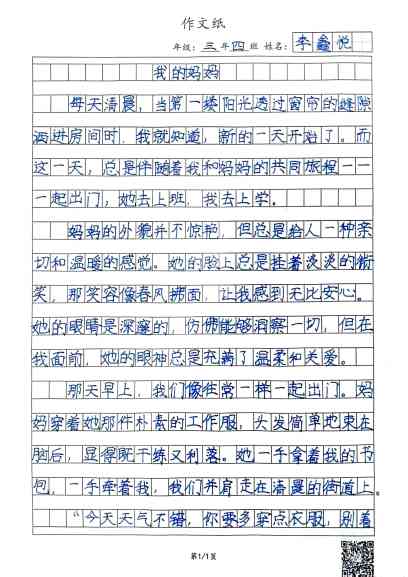 作文纸
年级：三年四班 姓名：李鑫悦
我的妈妈
每天清晨，当第一缕阳光透过窗帘的缝隙
洒进房间时，我就知道，新的一天开始了。而
这一天，总是伴随着我和妈妈的共同旅程——
一起出门，她去上班，我去上学。
妈妈的外貌并不惊艳，但总是给人一种亲
切和温暖的感觉。她的脸上总是挂着淡淡的微
笑，那笑容像春风拂面，让我感到无比安心。
她的眼睛是深邃的，仿佛能够洞察一切，但在
我面前，她的眼神总是充满了温柔和关爱。
那天早上，我们像往常一样一起出门。妈
妈穿着她那件朴素的工作服，头发简单地束在
脑后，显得既干练又利落。她一手拿着我的书
包，一手牵着我，我们并肩走在清晨的街道上。
“今天天气不错，你要多穿点衣服，别着
第1/1页